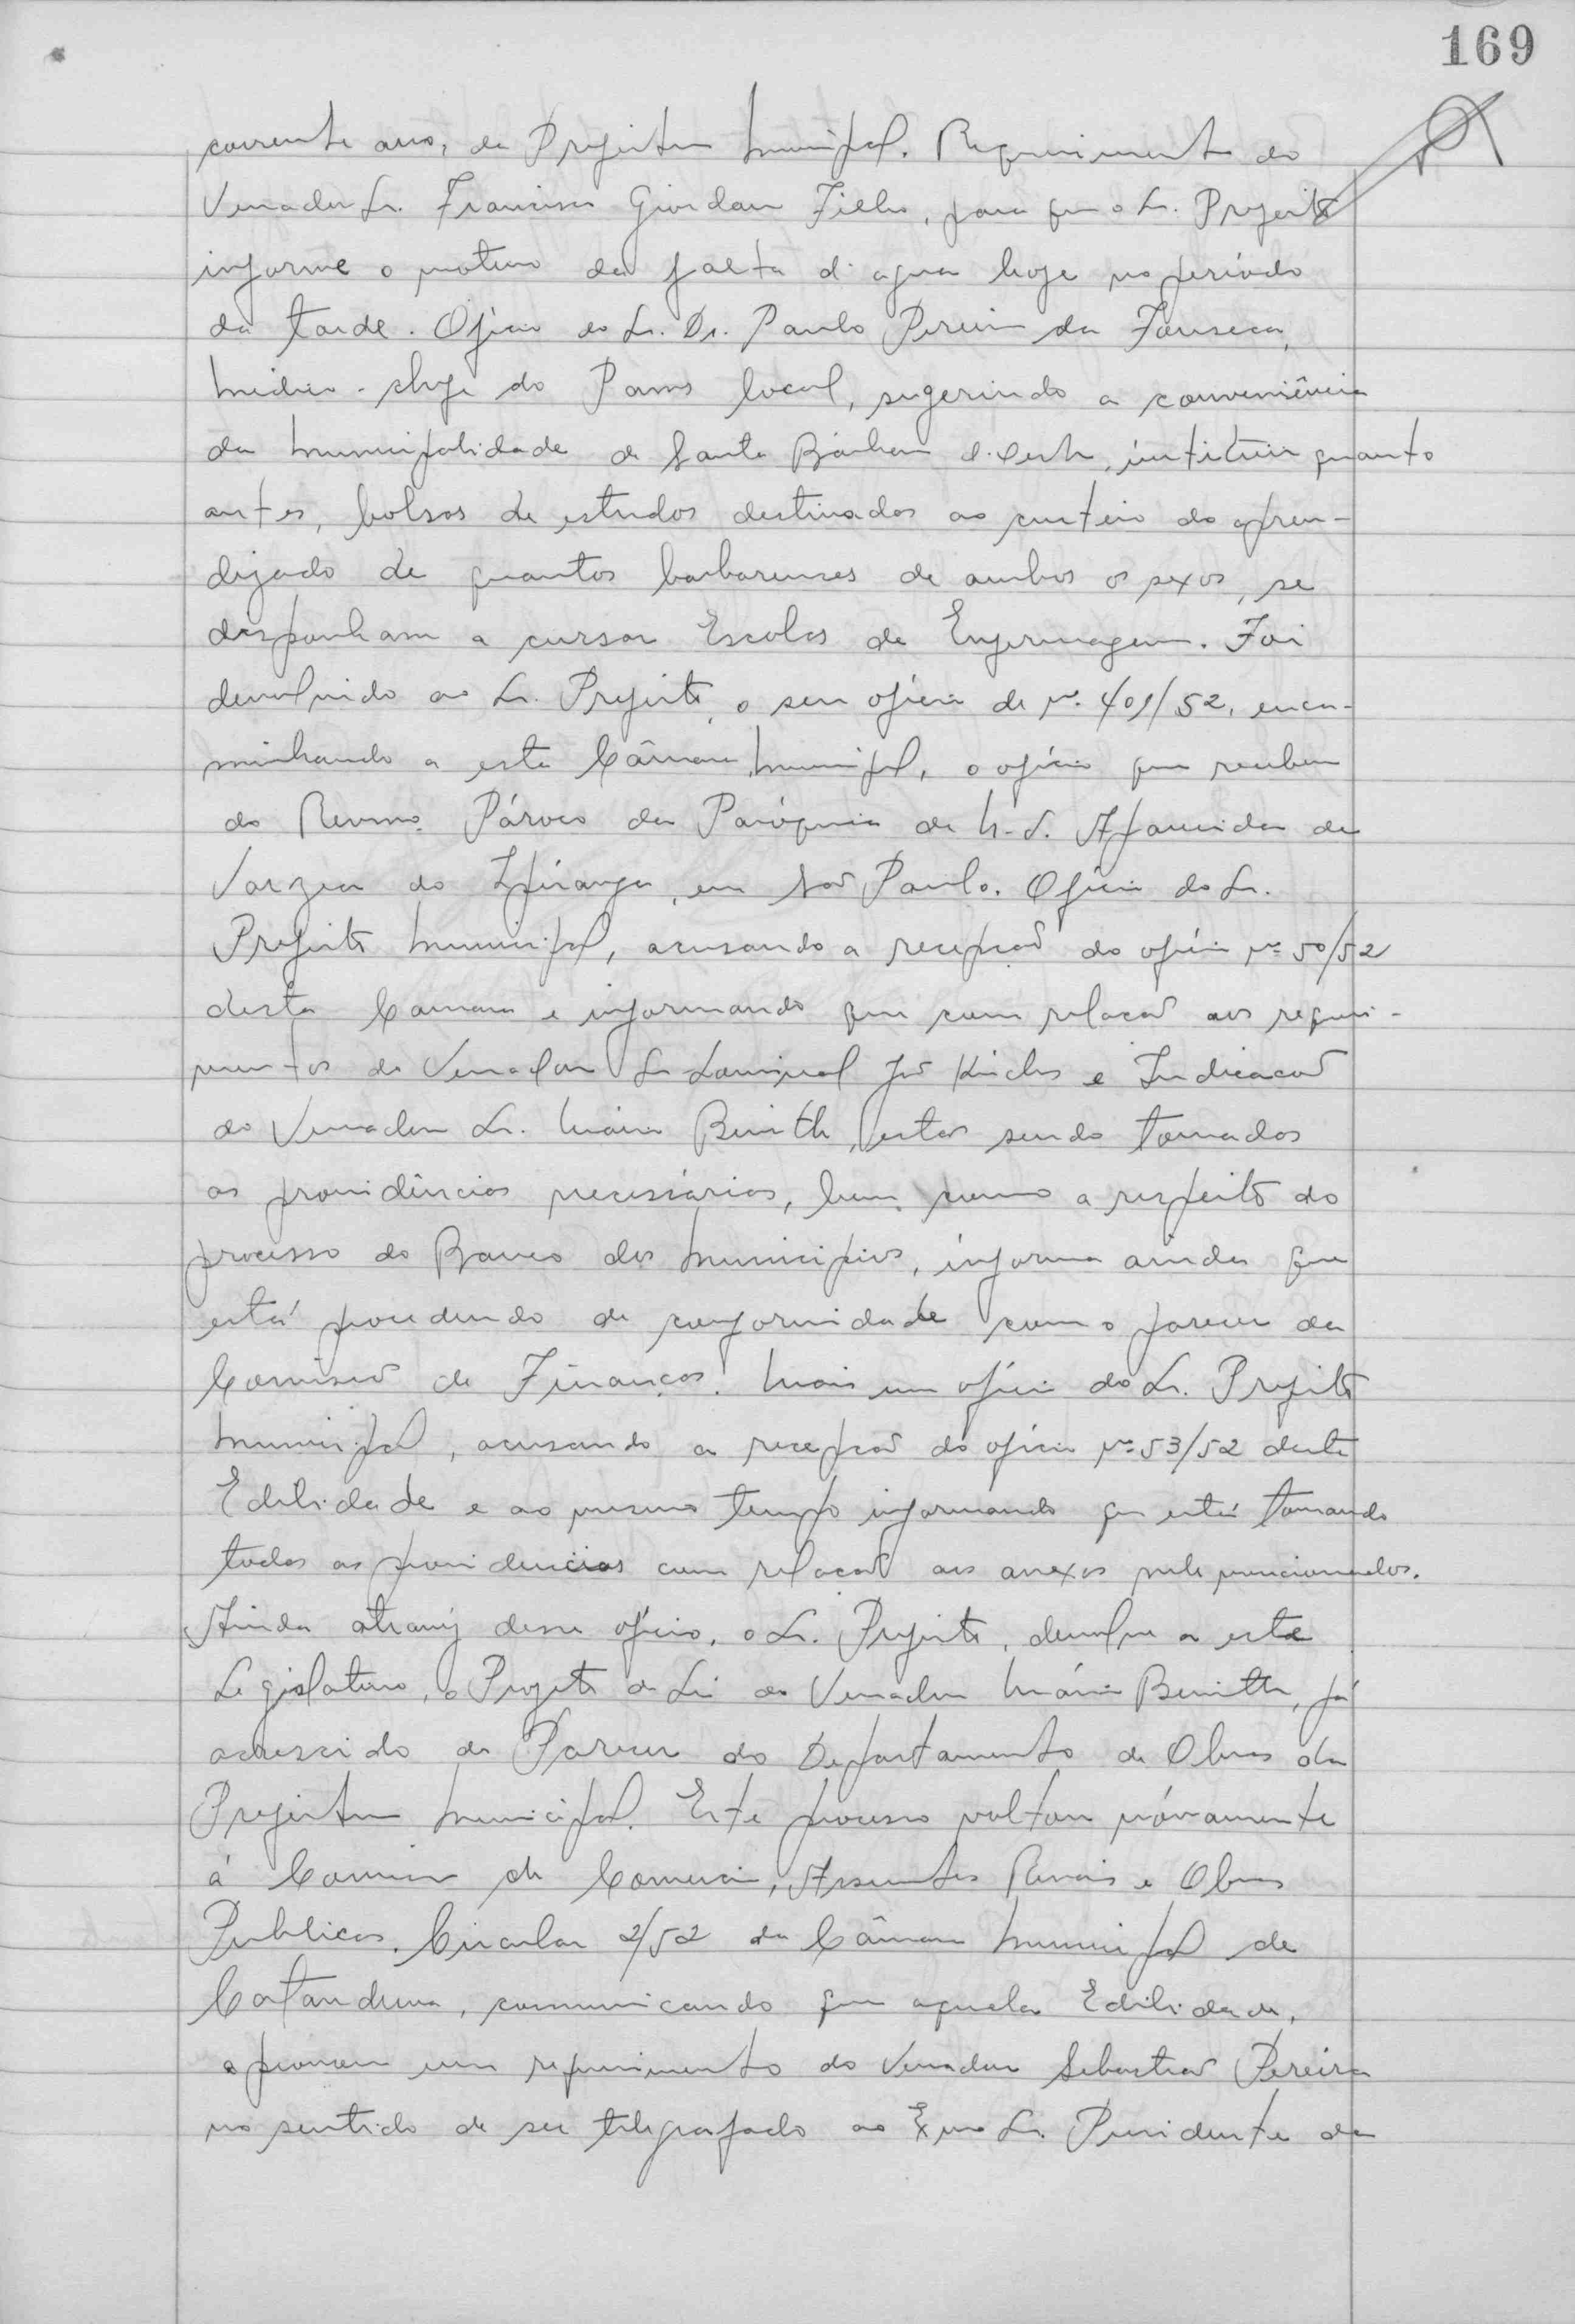 169
corrente ano, da Prefeitura Municipal. Requerimento do
Vereador Sr. Francisco Giordano Filho, para que o Sr. Prefeito
informe o motivo da falta d'agua hoje no período
da tarde. Oficio do Sr. Dr. Paulo Pereira da Fonseca,
Médico-chefe do Pams local, sugerindo a conveniência
da Municipalidade de Santa Bárbara d'Oeste, instituir quanto
antes, bolsas de estudos destinados ao custeio do apren-
dizado de quantos barbarenses de ambos os sexos, se
disponham a cursar Escolas de Enfermagem. Foi
devolvido ao Sr. Prefeito, o seu oficio de nº 401/52, enca-
minhando a esta Câmara Municipal, o ofício que recebeu
do Revmo. Pároco da Paróquia de N. S. Aparecida da
Varzea do Ipiranga, em São Paulo. Oficio do Sr.
Prefeito Municipal, acusando a recepção do ofício nº 50/52
desta Camara e informando que com relação aos requeri-
mentos do Vereador Sr. e Indicação
do Vereador Sr. Mário , estão sendo tomadas
as providências necessárias, bem como a respeito do
processo do Banco dos Municipios, informa ainda que
está procedendo de conformidade com o parecer da
Comissão de Finanças. Mais um ofício do Sr. Prefeito
Municipal, acusando a recepção do ofício nº 53/52 desta
Edilidade e ao mesmo tempo informando que está tomando
todas as providencias com relação aos anexos nele mencionados.
Ainda atravéz desse ofício, o Sr. Prefeito, devolve a esta
Legislatura, o Projeto de Lei do Vereador Mário , já
acrescido do Parecer do Departamento de Obras da
Prefeitura Municipal. Este processo voltou nóvamente
á Comissão de Comercio, Assuntos Rurais e Obras
Publicas. Circular 2/52 da Câmara Municipal de
Catanduva, comunicando que aquela Edilidade,
aprovou um requerimento do Vereador Sebastião Pereira
no sentido de ser telegrafado ao Exmo Sr. Presidente da